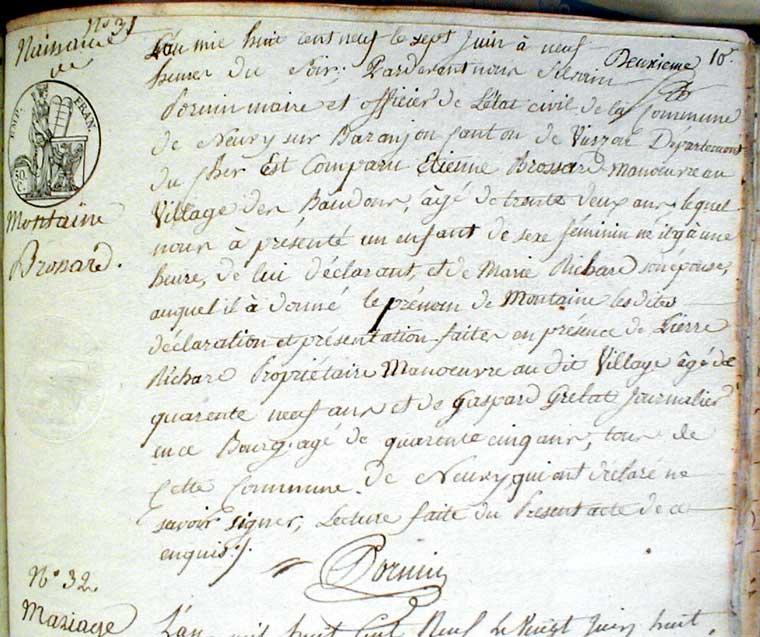 N° 31
Naissance
de
Montaine
Brossard.
EMP. FRAN.
50.
C.
Deuxieme 10.
L'an mil huit cent neuf le sept Juin à neuf
heures du Soir; Pardevant nous Silvain
Dormin maire et officier de L'état civil de la Commune
de Neuvy sur Baranjon Canton de Vierzon Département
du Cher Est Comparu Etienne Brossard manoeuvre au
Village des Baudons, âgé de trente deux ans lequel
nous à présenté un enfant de sexe féminin né à une
heure, de lui déclarant, et de Marie Richard son épouse,
auquel il à donné le prénom de Montaine les dites
déclaration et présentation faites en présence de Pierre
Richard Propriétaire Manoeuvre au dit Village âgé de
quarente neuf ans et de Gaspard Grelat Journalier
en ce Bourg agé de quarente cinq ans, tous de
Cette Commune de Neuvy, qui ont déclaré ne
savoir signer, Lecture faite du Present acte de ce
enquis ./.
Dormin
N° 32.
Mariage
L'an mil huit Cent Neuf le Vingt Juin huit